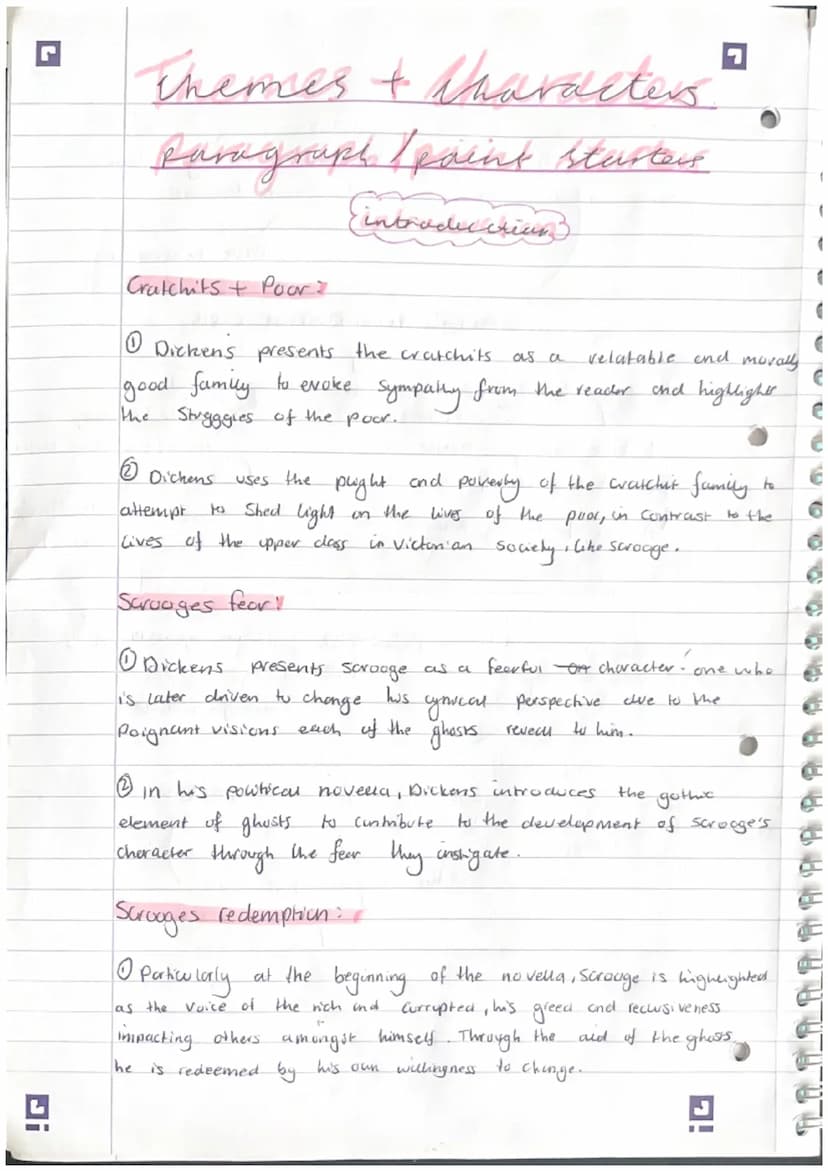 Themes + Characters
paragraph / point starters
introduction
Cratchits + Poor:
① Dickens presents the cratchits as a relatable and morally
good family to evoke sympathy from the reader and highlight
the Struggles of the poor.
② Dickens uses the plight and poverty of the cratchit family to
attempt to Shed light on the lives of the poor, in contrast to the
lives of the upper class in Victorian society, like scrooge.
Scrooges fear:
① Dickens presents scrooge as a fearful character - one who
is later driven to change his cynical perspective due to the
poignant visions each of the ghosts reveal to him.
② In his political novella, Dickens introduces the gothic
element of ghosts to contribute to the development of scrooge's
character through the fear they instigate.
Scrooges redemption:
① Particularly at the beginning of the novella, Scrooge is highlighted
as the voice of the rich and currupted, his greed and reclusiveness
impacting others amongst himself. Through the aid of the ghosts,
he is redeemed by his own willingness to change.